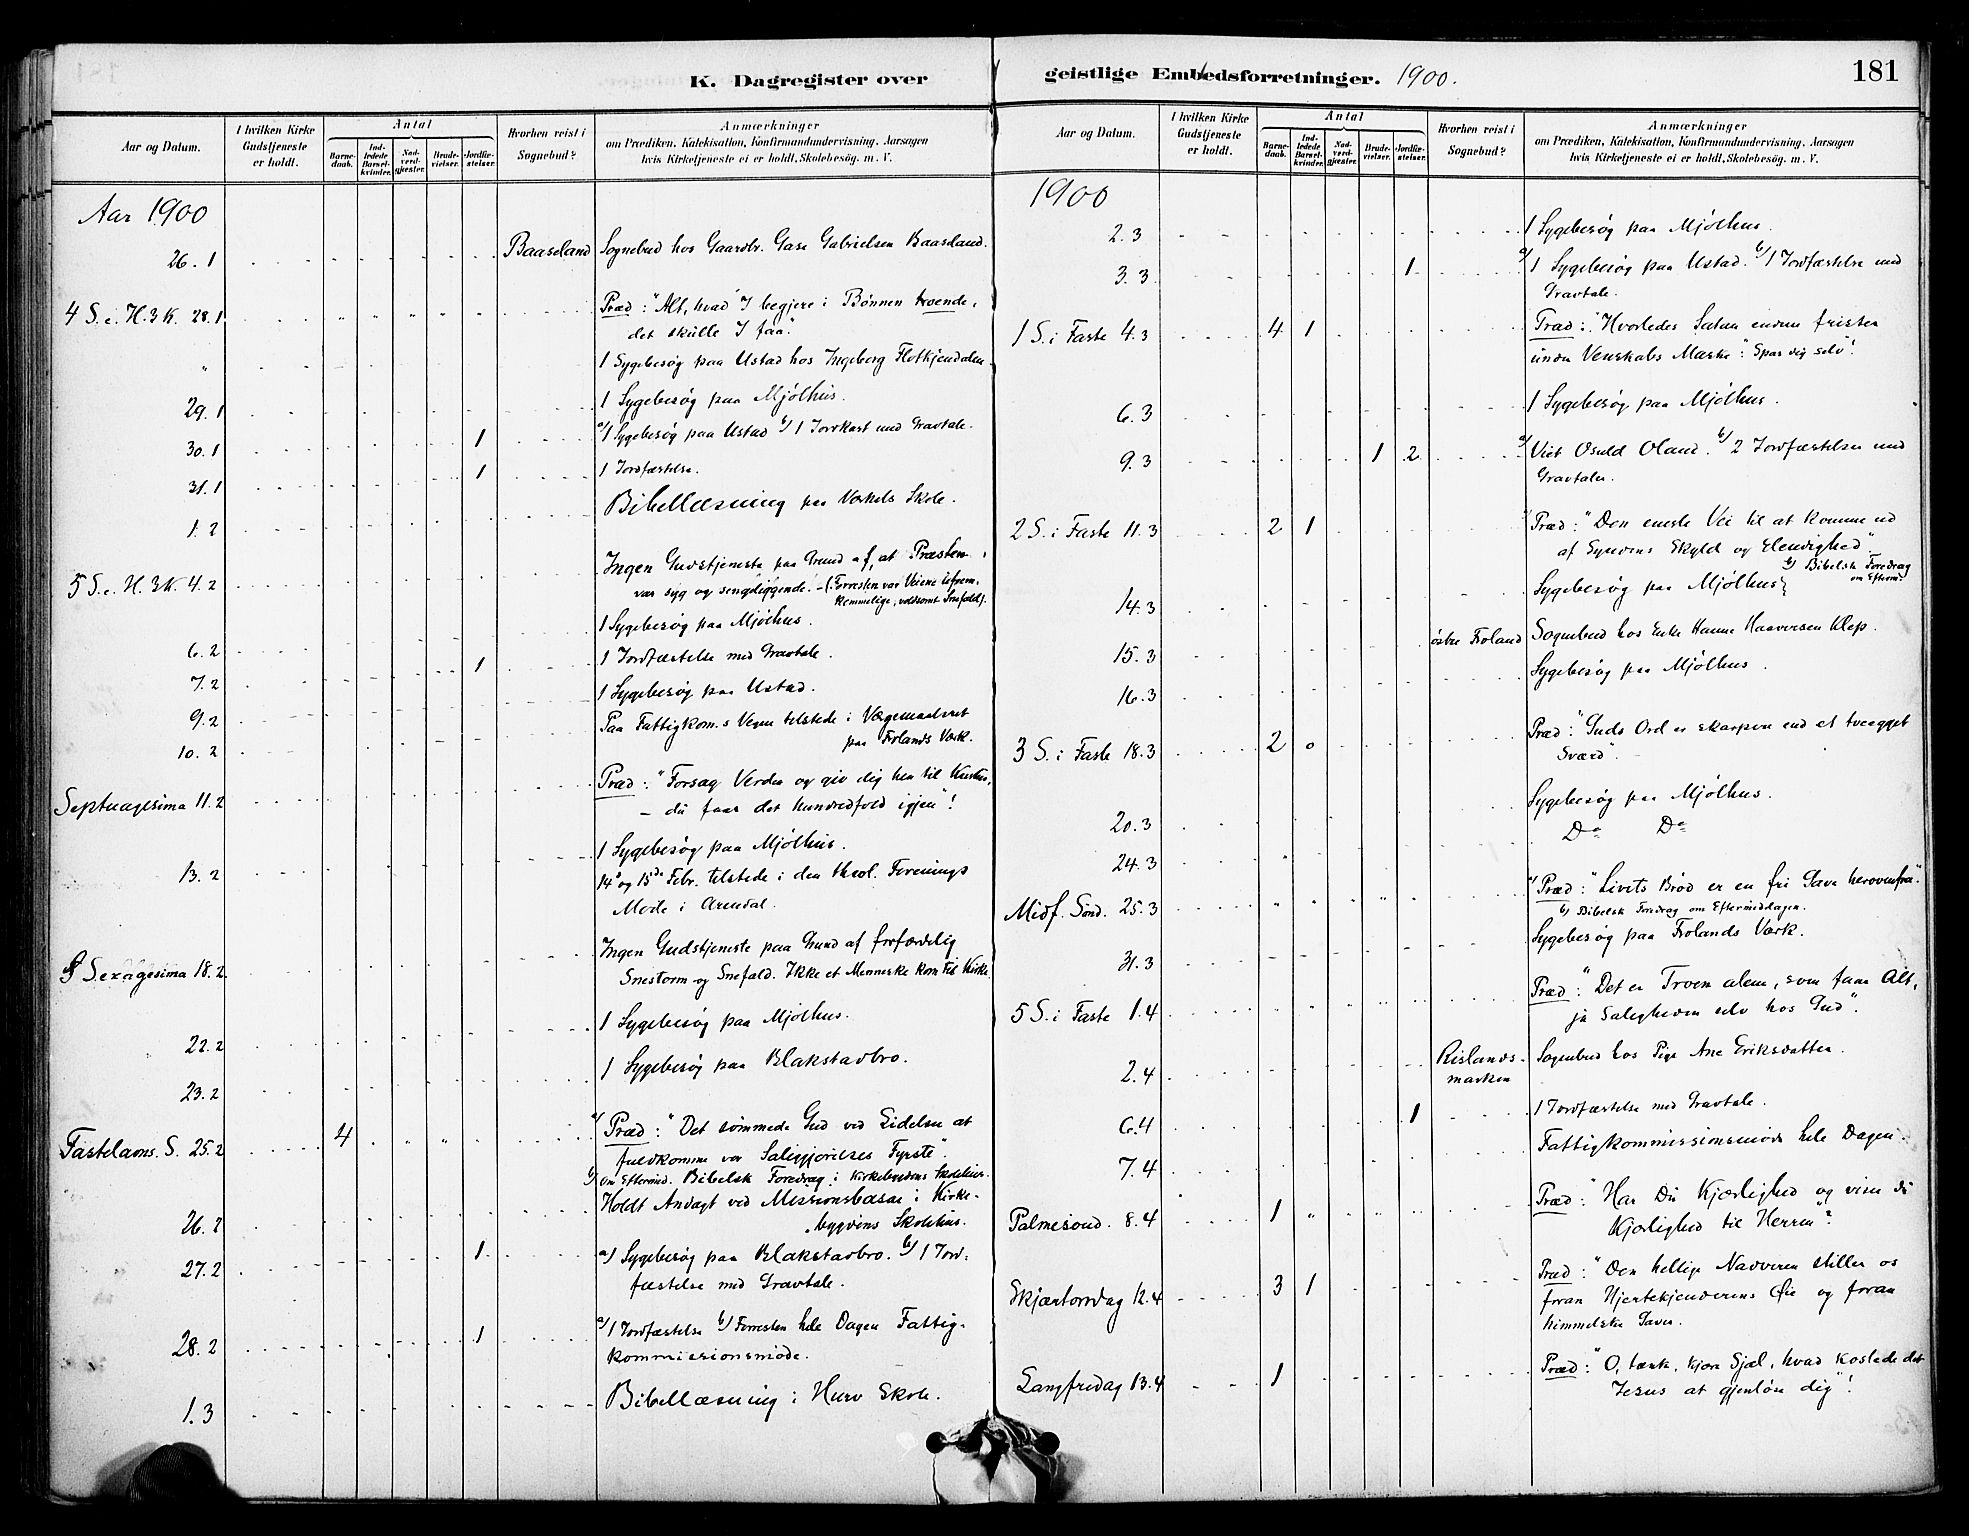 K. Dagregister over
Aar og Datum.
I hvilken Kirke Gudstjeneste er holdt.
Antal
Barnedaab.
Indledede Barselkvinder.
Nadverdgjester.
Brudevielser.
Jordfæstelser.
Hvorhen reist i Sognebud?
Anmærkninger
om Prædiken, Katekisation, Konfirmandundervisning, Aarsagen
hvis Kirketjeneste ei er holdt, Skolebesøg. m. V.
Aar 1900
26.1 Baaseland Sognebud hos Gaardbr. Gabrielsen Baasland.
4 S. e. H. 3 K. 28.1 Præd: "Alt, hvad I begjere i Bønnen troende,
det skulle I faa".
" 1 Sygebesøg paa Ustad hos Ingeborg Flotkjendalen.
29.1 1 Sygebesøg paa Mjölhus.
30.1 1 a/ 1 Sygebesøg paa Ustad b/ 1 Jordkast med Gravtale.
31.1 1 1 Jordfæstelse.
1.2 Bibellæsning paa Værkets Skole.
5 S. e. H. 3 K. 4.2 Ingen Gudstjeneste paa Grund af, at Præsten
var syg og sengeliggende. - (Forresten var Veiene ufrem-
kommelige, voldsomt Snefald).
6.2 1 Sygebesøg paa Mjölhus.
7.2 1 1 Jordfæstelse med Gravtale.
9.2 1 Sygebesøg paa Ustad.
10.2 Paa Fattigkom.s Vegne tilstede i Værgemaalsret
paa Frolands Værk.
Septuagesima 11.2 Præd: "Forsag Verden og giv dig hen til Kristus,
- du faar det hundredfold igjen"!
13.2 1 Sygebesøg paa Mjölhus.
14de og 15de Febr. tilstede i den theol. Forenings
Møde i Arendal.
Sexagesima 18.2 Ingen Gudstjeneste paa Grund af forfærdelig
Snestorm og Snefald. Ikke et Menneske kom til Kirke.
22.2 1 Sygebesøg paa Mjölhus.
23.2 1 Sygebesøg paa Blakstadbro.
Fastelavns. S. 25.2 4 a/ Præd: "Det sömmede Gud ved Lidelser at
fuldkomme vor Saliggjørelses Fyrste".
b/ om Eftermd. Bibelsk Foredrag i Kirkebygdens Skolehus.
26.2 Holdt Andagt ved Missionsbasar i Kirke-
bygdens Skolehus.
27.2 1 a/ Sygebesøg paa Blakstadbro. b/ 1 Jord-
fæstelse med Gravtale.
28.2 1 a/ 1 Jordfæstelse b/ Forresten hele Dagen Fattig-
kommissionsmøde.
1.3 Bibellæsning i Hurv Skole.
geistlige Embedsforretninger. 1900.
181
Aar og Datum.
I hvilken Kirke Gudstjeneste er holdt.
Antal
Barnedaab.
Indledede Barselkvinder.
Nadverdgjester.
Brudevielser.
Jordfæstelser.
Hvorhen reist i Sognebud?
Anmærkninger
om Prædiken, Katekisation, Konfirmandundervisning, Aarsagen
hvis Kirketjeneste ei er holdt, Skolebesøg. m. V.
1900
2.3 1 Sygebesøg paa Mjölhus.
3.3 1 a/ 1 Sygebesøg paa Ustad. b/ 1 Jordfæstelse med
Gravtale.
1 S. i Faste 4.3 4 1 Præd: "Hvorledes Satan endnu frister
under Venskabs Maske": Spar dig selv!
6.3 1 Sygebesøg paa Mjölhus.
9.3 1 2 a/ Viet Osuld Oland. b/ 2 Jordfæstelser med
Gravtaler.
2 S. i Faste 11.3 2 1 a/ Præd: "Den eneste Vei til at komme ud
af Syndens Skyld og Elendighed".
b/ Bibelsk Foredrag
om Efterm.
14.3 Sygebesøg paa Mjölhus
15.3 östre Froland Sognebud hos Enke Hanne Haaversen Klep.
16.3 Sygebesøg paa Mjölhus.
3 S. i Faste 18.3 2 0 Præd: "Guds Ord er skarpere end et tveegget
Sværd".
20.3 Sygebesøg paa Mjölhus.
24.3 Do Do
Midf. Sønd. 25.3 a/ Præd: "Livets Brød er en fri Gave herovenfra".
b/ Bibelsk Foredrag om Eftermiddagen.
31.3 Sygebesøg paa Frolands Værk.
5 S. i Faste 1.4 Præd: "Det er Troen alene, som faar Alt,
ja Saligheden selv hos Gud".
2.4 Rislands-
marken Sognebud hos Pige Ane Eriksdatter.
6.4 1 1 Jordfæstelse med Gravtale.
7.4 Fattigkommissionsmøde hele Dagen.
Palmesønd. 8.4 1 Præd: "Har Du Kjærlighed og viser du
Kjærlighed til Herren"?
Skjærtorsdag 12.4 3 1 Præd: "Den hellige Nadveren stiller os
foran Hjertekjenderens Øie og foran
himmelske Gaver.
Langfredag 13.4 1 Præd: "O, tænk, kjære Sjæl, hvad kostede det
Jesus at gjenløse dig"!